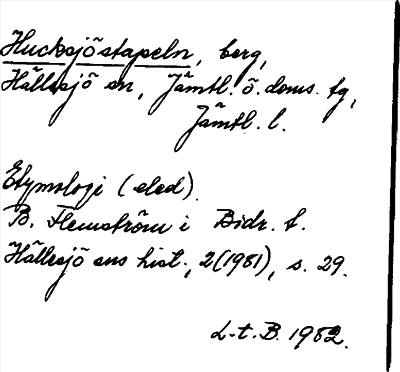 Hucksjöstapeln, berg,
Hällesjö sn, Jämtl. ö. doms. tg,
Jämtl. l.
Etymologi (eled).
B. Flemström i Bidr. t.
Hällesjö sns hist., 2 (1981), s. 29.
L-t. B. 1982.